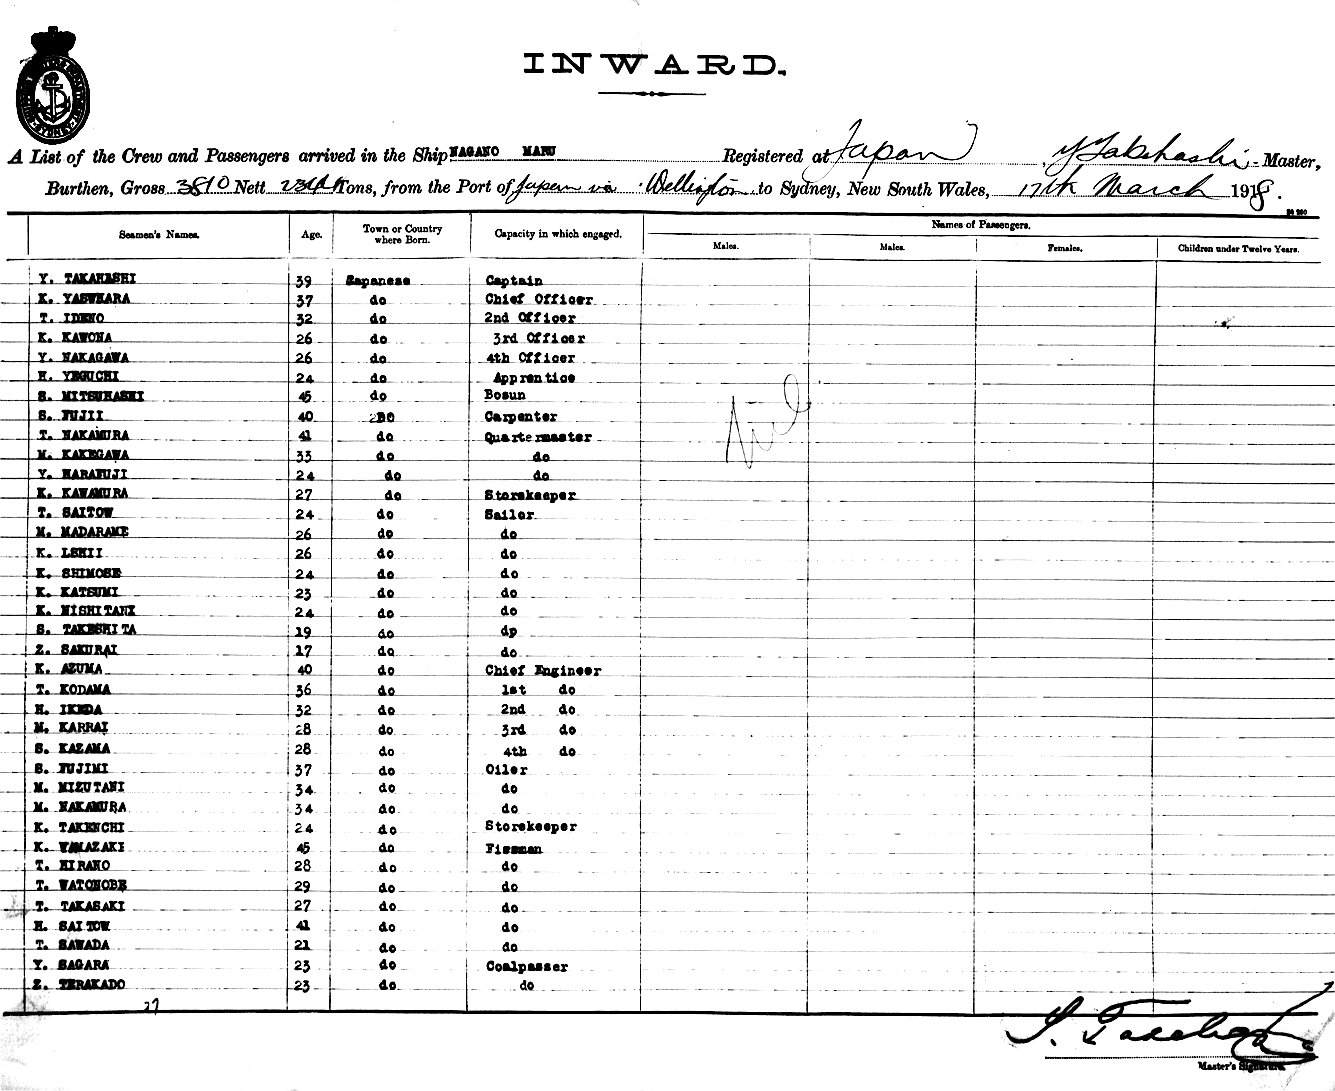 INWARD.
A List of the Crew and Passengers arrived in the Ship NAGANO MARU Registered at Japan Y Takahashi - Master,
Burthen, Gross 3810 Nett Tons, from the Port of Japan via Wellington to Sydney, New South Wales, 17th March 1918.
Names of Passengers.
Seamen's Names. Age. Town or Country where Born. Capacity in which engaged. Males. Males. Females. Children under Twelve Years.
Y. TAKAHASHI 39 Japanese Captain
K. YASUHARA 37 do Chief Officer
T. IDENO 32 do 2nd Officer
K. KAWONA 26 do 3rd Officer
Y. NAKAGAWA 26 do 4th Officer
H. YEGUCHI 24 do Apprentice
S. MITSUHASHI 45 do Bosun
S. FUJII 40 DO Carpenter
T. NAKAMURA 41 do Quartermaster
M. KAKEGAWA 33 do do
Y. HARAFUJI 24 do do
K. KAWAMURA 27 do Storekeeper
T. SAITOW 24 do Sailor
M. MADARAME 26 do do
K. LSHII 26 do do
K. SHIMOSE 24 do do
K. KATSUMI 23 do do
K. NISHITANI 24 do do
S. TAKESHITA 19 do dp
Z. SAKURAI 17 do do
K. AZUMA 40 do Chief Engineer
T. KODAMA 36 do 1st do
H. IKEDA 32 do 2nd do
M. KARRAI 28 do 3rd do
S. KAZAMA 28 do 4th do
S. FUJIMI 37 do Oiler
M. MIZUTANI 34 do do
M. NAKAMURA 34 do do
K. TAKENCHI 24 do Storekeeper
K. YAMAZAKI 45 do Fireman
T. HIRANO 28 do do
T. WATONOBE 29 do do
T. TAKASAKI 27 do do
H. SAITOW 41 do do
T. SAWADA 21 do do
Y. SAGARA 23 do Coalpasser
Z. TERAKADO 23 do do
Nil
37
Master's Signature.